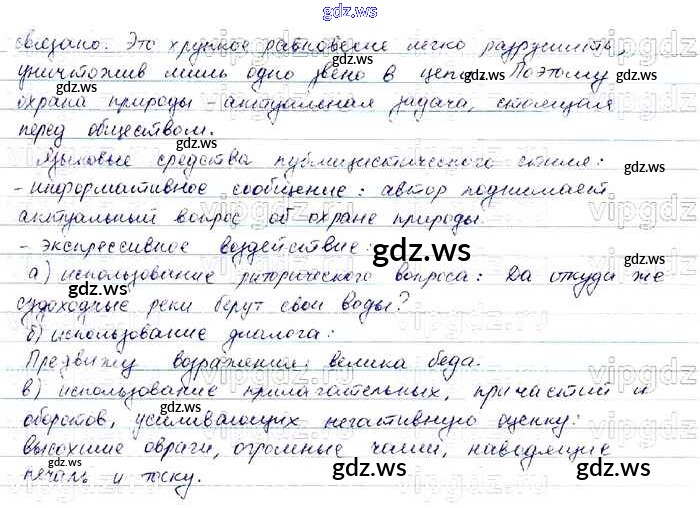 gdz.ws
связано. Это хрупкое равновесие легко разрушить,
уничтожив лишь одно звено в цепи. Поэтому
охрана природы - актуальная задача, стоящая
перед обществом.
Языковые средства публицистического стиля:
- информативное сообщение: автор поднимает
актуальный вопрос об охране природы.
- экспрессивное воздействие:
а) использование риторического вопроса: Да откуда же
судоходные реки берут свои воды?
б) использование диалога:
Предвижу возражения: велика беда.
в) использование прилагательных, причастий и
оборотов, усиливающих негативную оценку:
высохшие овраги, огромные чаши, наводящие
печаль и тоску.
gdz.ws